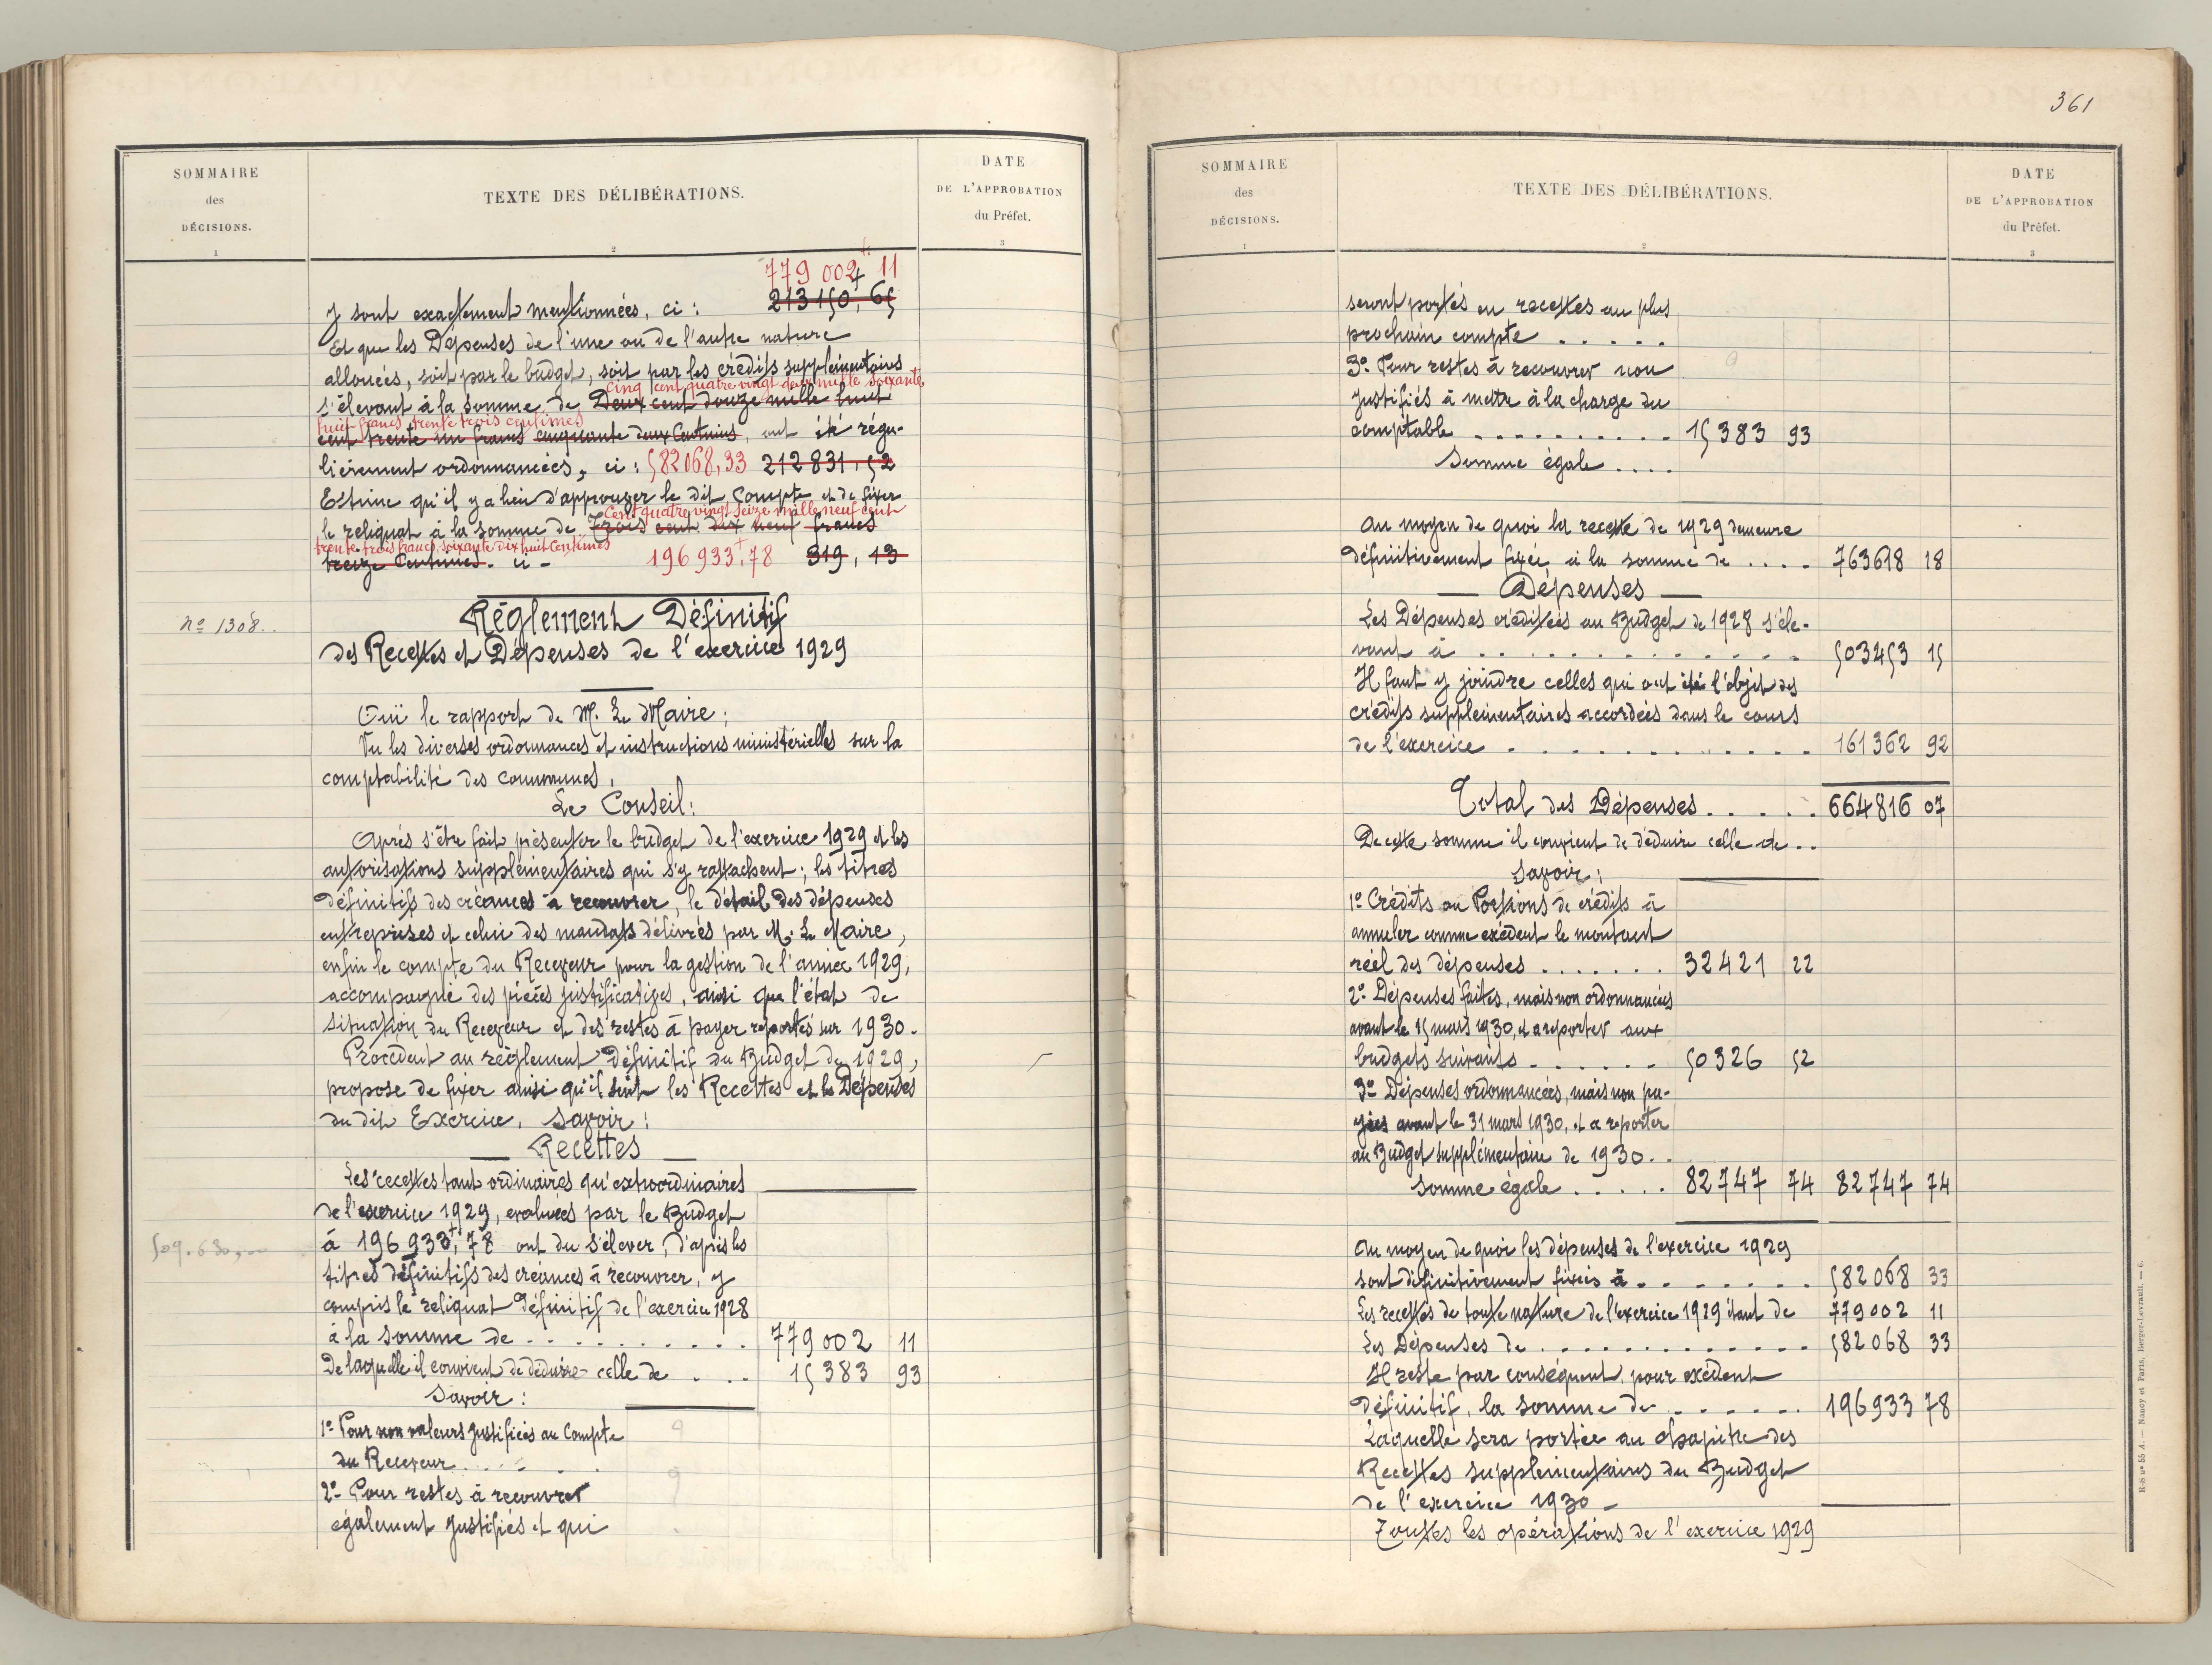 SOMMAIRE
des
DÉCISIONS.
1
TEXTE DES DÉLIBÉRATIONS.
2
DATE
DE L'APPROBATION
du Préfet.
3
779 002 11
y sont exactement mentionnées, ci : 213150,65
Et que les Dépenses de l'une ou de l'autre nature
allouées, soit par le budget, soit par les crédits supplémentaires
cinq cent quatre vingt deux mille soixante
s'élevant à la somme de Deux cent douze mille huit
huit francs trente trois centimes
cent trente un francs cinquante deux Centimes, ont été régu-
lièrement ordonnancées, ci : 582068,33 212831,52
Estime qu'il y a lieu d'approuver le dit Compte et de fixer
Cent quatre vingt seize mille neuf cent
le reliquat à la somme de Trois cent dix neuf francs
trente trois francs soixante dix huit Centimes
treize Centimes. ci - 196933,78 319,13
nº 1308.
Réglement Définitif
des Recettes et Dépenses de l'exercice 1929
Ouï le rapport de M. Le Maire ;
Vu les diverses ordonnances et instructions ministérielles sur la
comptabilité des communes,
Le Conseil :
Après s'être fait présenter le budget de l'exercice 1929 et les
autorisations supplémentaires qui s'y rattachent ; les titres
définitifs des créances à recouvrer, le détail des dépenses
entreprises et celui des mandats délivrés par M. Le Maire,
enfin le compte du Receveur pour la gestion de l'année 1929,
accompagné des pièces justificatives, ainsi que l'état de
situation du Receveur et des restes à payer reportés sur 1930.
Procédant au réglement définitif du Budget de 1929,
propose de fixer ainsi qu'il suit les Recettes et les Dépenses
du dit Exercice, savoir :
— Recettes —
Les recettes tant ordinaires qu'extraordinaires
de l'exercice 1929, evaluées par le Budget
509.630,00
à 196 933,78 ont du s'élever, d'après les
titres définitifs des créances à recouvrer, y
compris le reliquat définitif de l'exercice 1928
à la somme de . . . . . . . . . 779002 11
De laquelle il convient de déduire celle de . . . 15383 93
Savoir :
1º Pour non valeurs justifiées au Compte
du Receveur . . . . .
2º Pour restes à recouvrer
également justifiés et qui
361
SOMMAIRE
des
DÉCISIONS.
1
TEXTE DES DÉLIBÉRATIONS.
2
DATE
DE L'APPROBATION
du Préfet.
3
seront portés en recettes au plus
prochain compte . . . . .
3º Pour restes à recouvrer non
justifiés à mettre à la charge du
comptable . . . . . . . . . . 15383 93
Somme égale . . . .
Au moyen de quoi la recette de 1929 demeure
définitivement fixée, à la somme de . . . . 763618 18
— Dépenses —
Les Dépenses créditées au Budget de 1928 s'éle-
vant à . . . . . . . . . . . . 503453 15
Il faut y joindre celles qui ont été l'objet des
crédits supplémentaires accordées dans le cours
de l'exercice . . . . . . . . . . . . 161362 92
Total des Dépenses . . . . . 664816 07
De cette somme il convient de déduire celle de . .
Savoir :
1º Crédits ou Portions de crédits à
annuler comme excédent le montant
réel des dépenses . . . . . . . 32421 22
2º Dépenses faites, mais non ordonnancées
avant le 15 mars 1930, et a reporter aux
budgets suivants . . . . . . 50326 52
3º Dépenses ordonnancées, mais non pa-
yées avant le 31 mars 1930, et a reporter
au Budget supplémentaire de 1930 . .
Somme égale . . . . . 82747 74 82747 74
Au moyen de quoi les dépenses de l'exercice 1929
sont définitivement fixées à . . . . . . . 582068 33
Les recettes de toute nature de l'exercice 1929 étant de 779002 11
Les Dépenses de . . . . . . . . . . . . . 582068 33
Il reste par conséquent, pour excédent
définitif, la somme de . . . . . . 196933 78
Laquelle sera portée au chapitre des
Recettes supplémentaires du Budget
de l'exercice 1930 -
Toutes les opérations de l'exercice 1929
R-S nº 55 A. — Nancy et Paris, Berger-Levrault. — 6.